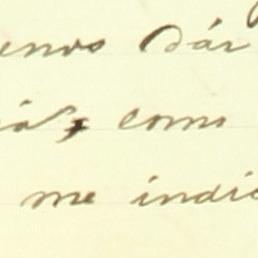 enos dár
iá, como
me indic